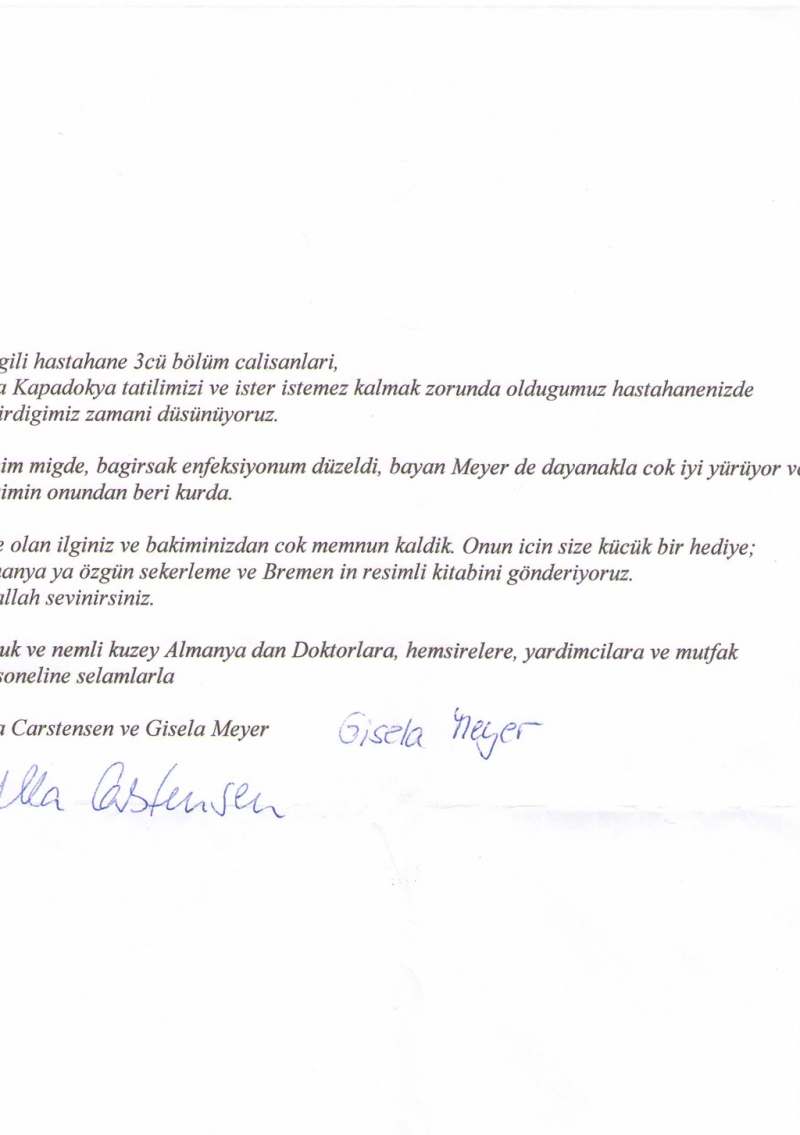 gili hastahane 3cü bölüm calisanlari,
a Kapadokya tatilimizi ve ister istemez kalmak zorunda oldugumuz hastahanenizde
irdigimiz zamani düsünüyoruz.
im migde, bagirsak enfeksiyonum düzeldi, bayan Meyer de dayanakla cok iyi yürüyor ve
imin onundan beri kurda.
e olan ilginiz ve bakiminizdan cok memnun kaldik. Onun icin size kücük bir hediye;
anya ya özgün sekerleme ve Bremen in resimli kitabini gönderiyoruz.
allah sevinirsiniz.
uk ve nemli kuzey Almanya dan Doktorlara, hemsirelere, yardimcilara ve mutfak
soneline selamlarla
a Carstensen ve Gisela Meyer
Gisela Meyer
Carstensen